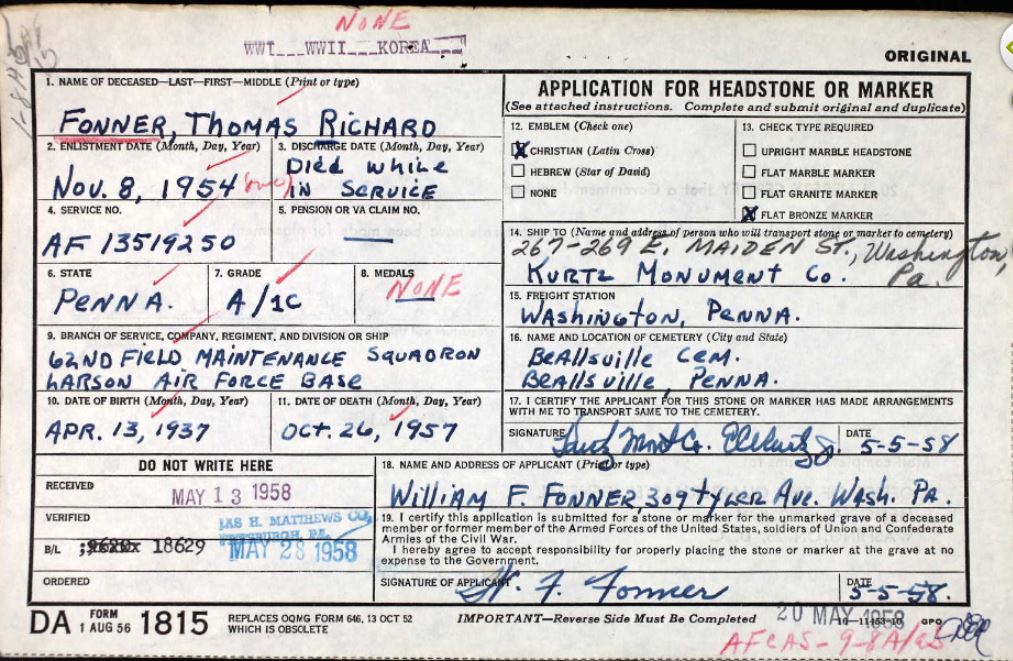 NONE
WWI___WWII___KOREA
ORIGINAL
1. NAME OF DECEASED—LAST—FIRST—MIDDLE (Print or type)
FONNER, THOMAS RICHARD
2. ENLISTMENT DATE (Month, Day, Year)
NOV. 8, 1954
3. DISCHARGE DATE (Month, Day, Year)
Died while
IN SERVICE
4. SERVICE NO.
AF 13519250
5. PENSION OR VA CLAIM NO.
—
6. STATE
PENNA.
7. GRADE
A/1C
8. MEDALS
NONE
9. BRANCH OF SERVICE, COMPANY, REGIMENT, AND DIVISION OR SHIP
62ND FIELD MAINTENANCE SQUADRON
LARSON AIR FORCE BASE
10. DATE OF BIRTH (Month, Day, Year)
APR. 13, 1937
11. DATE OF DEATH (Month, Day, Year)
OCT. 26, 1957
APPLICATION FOR HEADSTONE OR MARKER
(See attached instructions. Complete and submit original and duplicate)
12. EMBLEM (Check one)
X CHRISTIAN (Latin Cross)
HEBREW (Star of David)
NONE
13. CHECK TYPE REQUIRED
UPRIGHT MARBLE HEADSTONE
FLAT MARBLE MARKER
FLAT GRANITE MARKER
X FLAT BRONZE MARKER
14. SHIP TO (Name and address of person who will transport stone or marker to cemetery)
267-269 E. MAIDEN ST., Washington,
KURTZ MONUMENT CO. Pa.
15. FREIGHT STATION
WASHINGTON, PENNA.
16. NAME AND LOCATION OF CEMETERY (City and State)
BEAllsville CEM.
BEAllsville, PENNA.
17. I CERTIFY THE APPLICANT FOR THIS STONE OR MARKER HAS MADE ARRANGEMENTS
WITH ME TO TRANSPORT SAME TO THE CEMETERY.
SIGNATURE
DATE
5-5-58
DO NOT WRITE HERE
RECEIVED
MAY 13 1958
VERIFIED
JAS H. MATTHEWS CO.
PITTSBURGH, PA.
MAY 28 1958
B/L 18629
ORDERED
18. NAME AND ADDRESS OF APPLICANT (Print or type)
William F. FONNER, 309 tyler Ave. Wash. PA.
19. I certify this application is submitted for a stone or marker for the unmarked grave of a deceased
member or former member of the Armed Forces of the United States, soldiers of Union and Confederate
Armies of the Civil War.
I hereby agree to accept responsibility for properly placing the stone or marker at the grave at no
expense to the Government.
SIGNATURE OF APPLICANT
W. F. Fonner
DATE
5-5-58.
DA FORM 1 AUG 56 1815
REPLACES OQMG FORM 646, 13 OCT 52
WHICH IS OBSOLETE
IMPORTANT—Reverse Side Must be Completed
20 MAY 1958
GPO